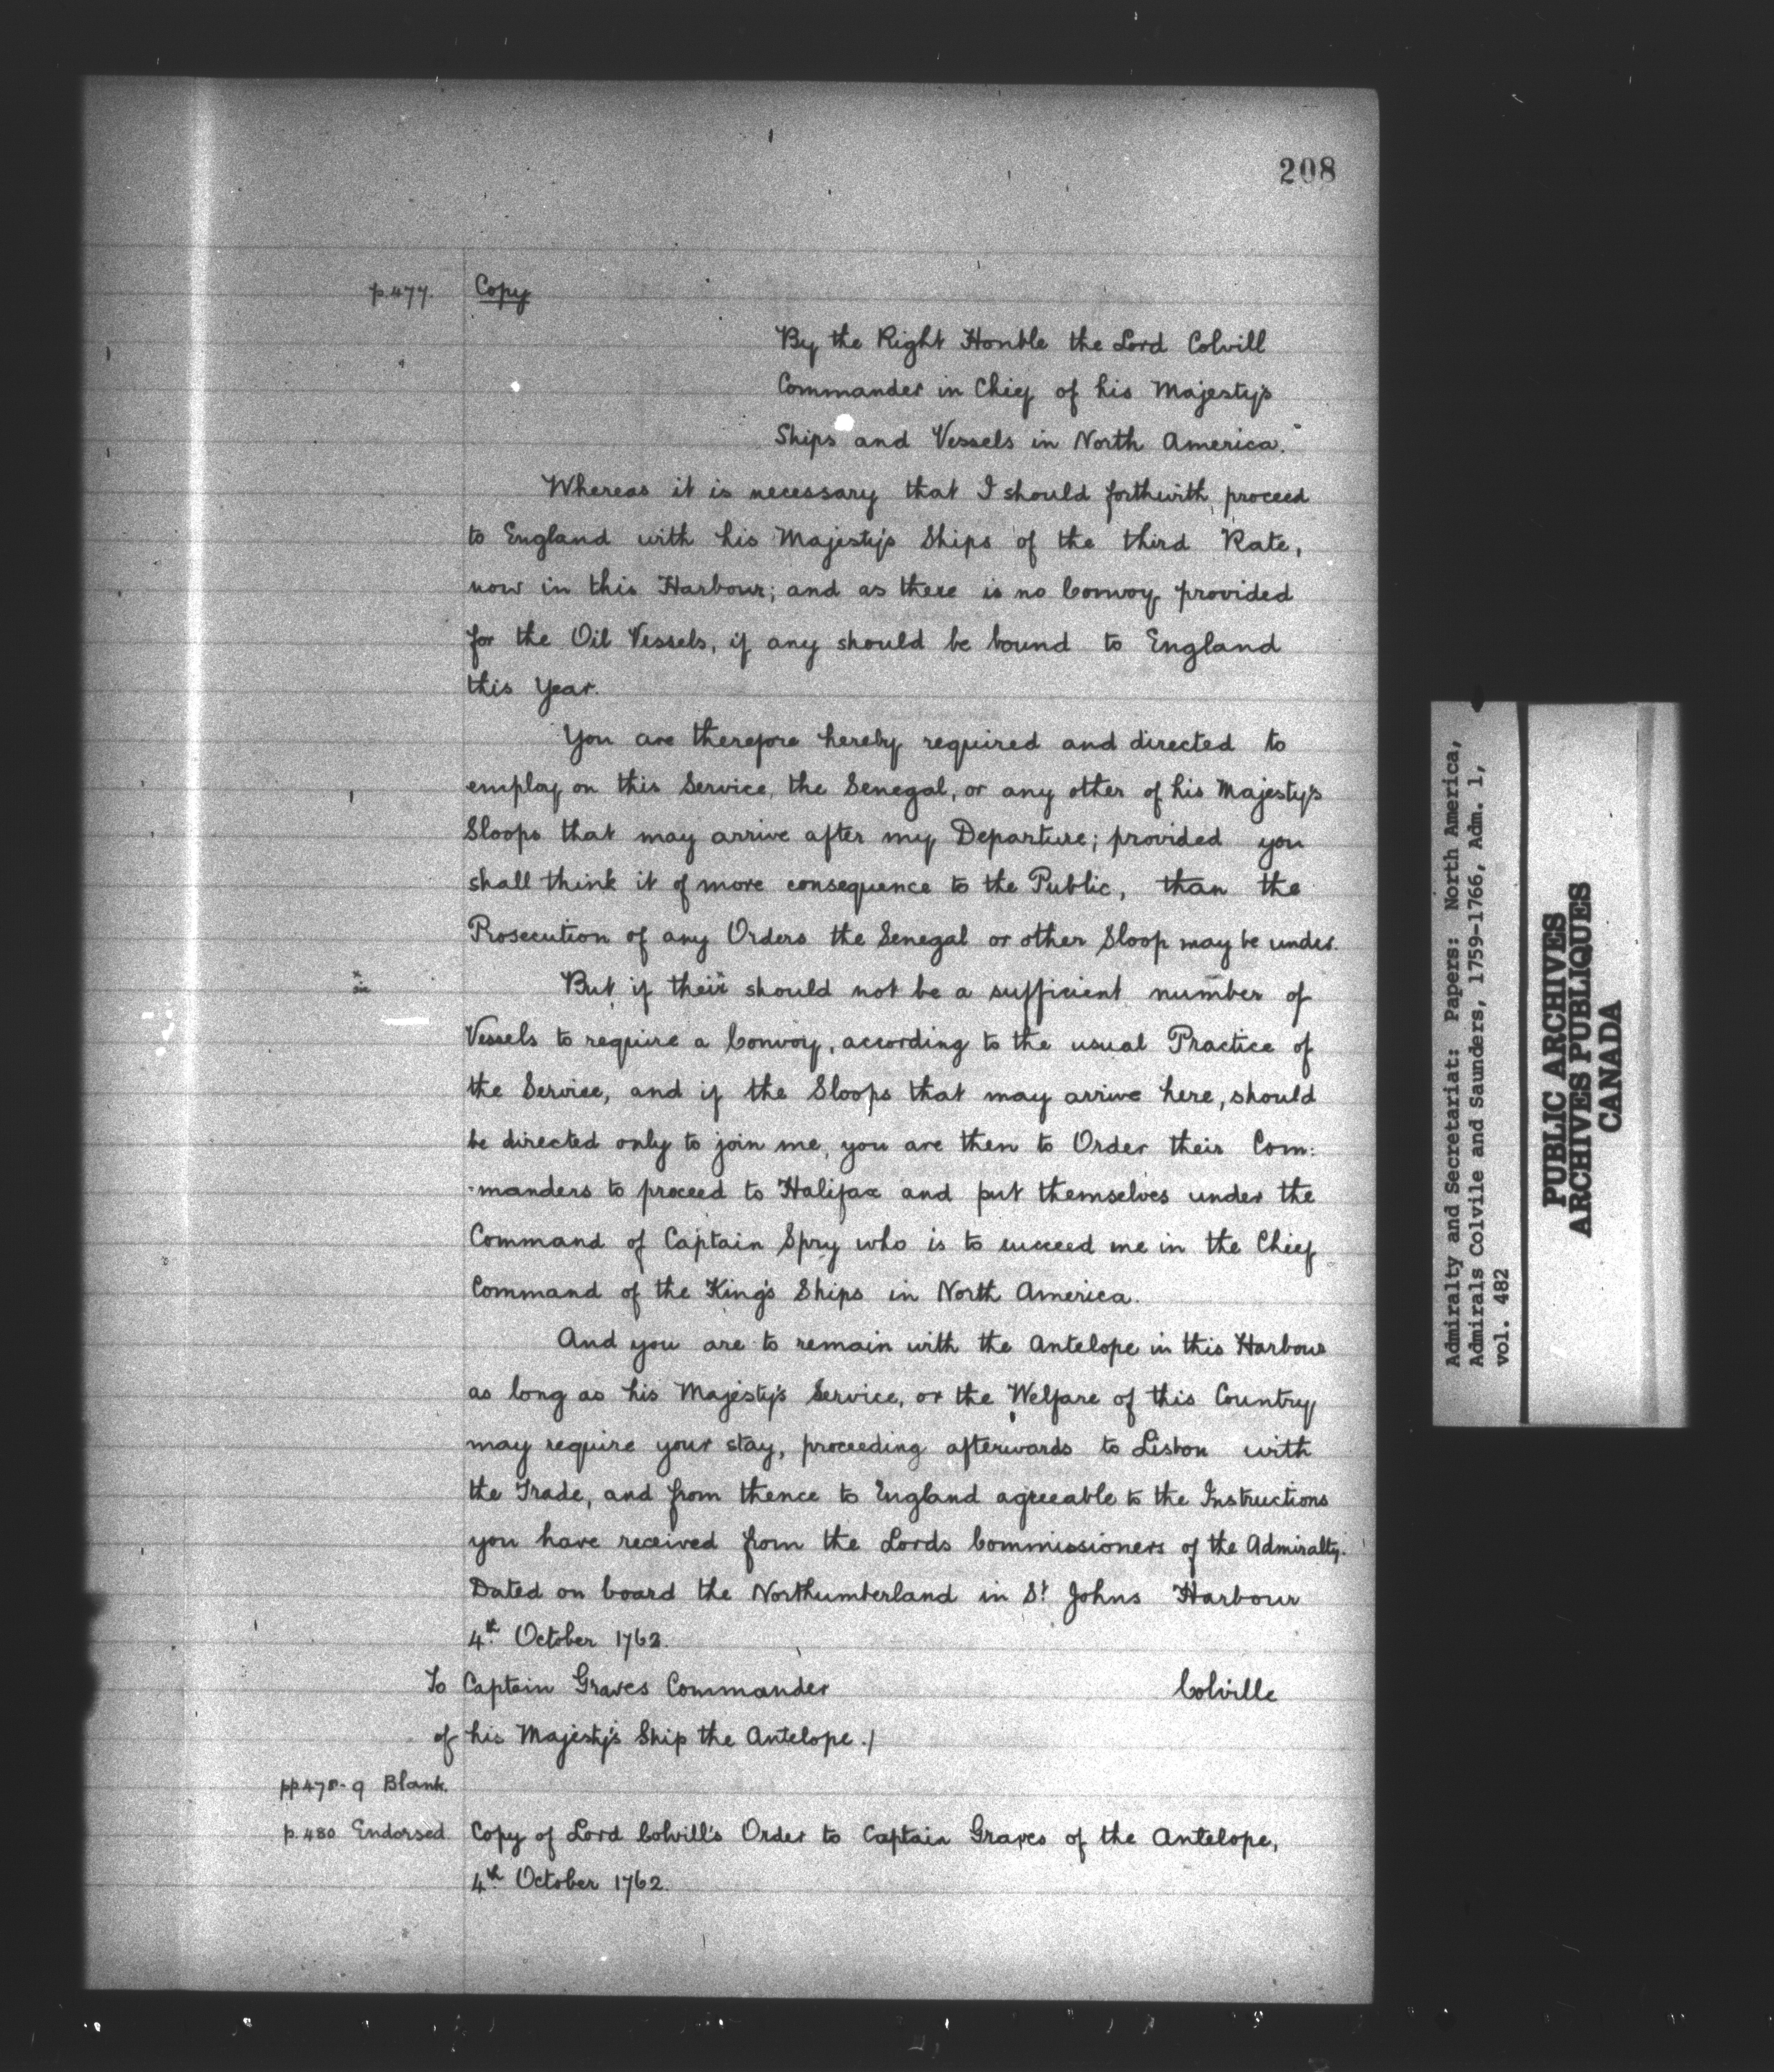 208
p.477. Copy
By the Right Honble the Lord Colvill
Commander in Chief of his Majesty's
Ships and Vessels in North America.
Whereas it is necessary that I should forthwith proceed
to England with his Majesty's Ships of the third Rate,
now in this Harbour; and as there is no Convoy provided
for the Oil Vessels, if any should be bound to England
this Year.
You are therefore hereby required and directed to
employ on this Service, the Senegal, or any other of his Majesty's
Sloops that may arrive after my Departure; provided you
shall think it of more consequence to the Public, than the
Prosecution of any Orders the Senegal or other Sloop may be under.
But if their should not be a sufficient number of
Vessels to require a Convoy, according to the usual Practice of
the Service, and if the Sloops that may arrive here, should
be directed only to join me, you are then to Order their Com:
-manders to proceed to Halifax and put themselves under the
Command of Captain Spry who is to succeed me in the Chief
Command of the King's Ships in North America.
And you are to remain with the Antelope in this Harbour
as long as his Majesty's Service, or the Welfare of this Country
may require your stay, proceeding afterwards to Lisbon with
the Trade, and from thence to England agreeable to the Instructions
you have received from the Lords Commissioners of the Admiralty.
Dated on board the Northumberland in St Johns Harbour
4th October 1762.
To Captain Graves Commander Colville
of his Majesty's Ship the Antelope./
pp.478-9 Blank.
p.480 Endorsed Copy of Lord Colvill's Order to Captain Graves of the Antelope,
4th October 1762.
Admiralty and Secretariat: Papers: North America,
Admirals Colvile and Saunders, 1759-1766, Adm. 1,
vol. 482
PUBLIC ARCHIVES
ARCHIVES PUBLIQUES
CANADA